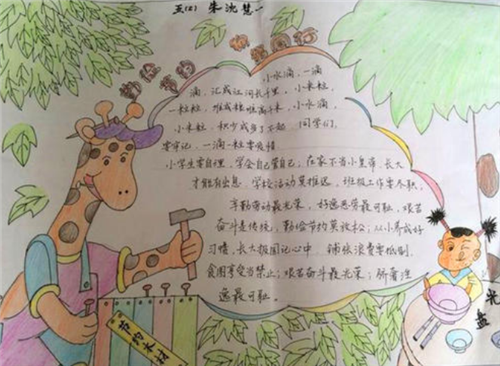 五(2) 朱沈慧一
勤俭节约 伴我同行
小水滴,一滴
滴,汇成江河长千里。小米粒,
一粒粒,堆成粮囤高千米。小水滴,
小米粒,积少成多了不起。同学们,
要牢记,一滴一粒要爱惜
小学生要自理,学会自己靠自己,在家不当小皇帝,长大
才能有出息。学校活动莫推迟,班级工作要尽职。
辛勤劳动最光荣,好逸恶劳最可耻。艰苦
奋斗是传统,勤俭节约莫放松;从小养成好
习惯,长大报国记心中。铺张浪费要抵制,
贪图享受当禁止;艰苦奋斗最光荣;骄奢淫
逸最可耻。
节约木材
光盘